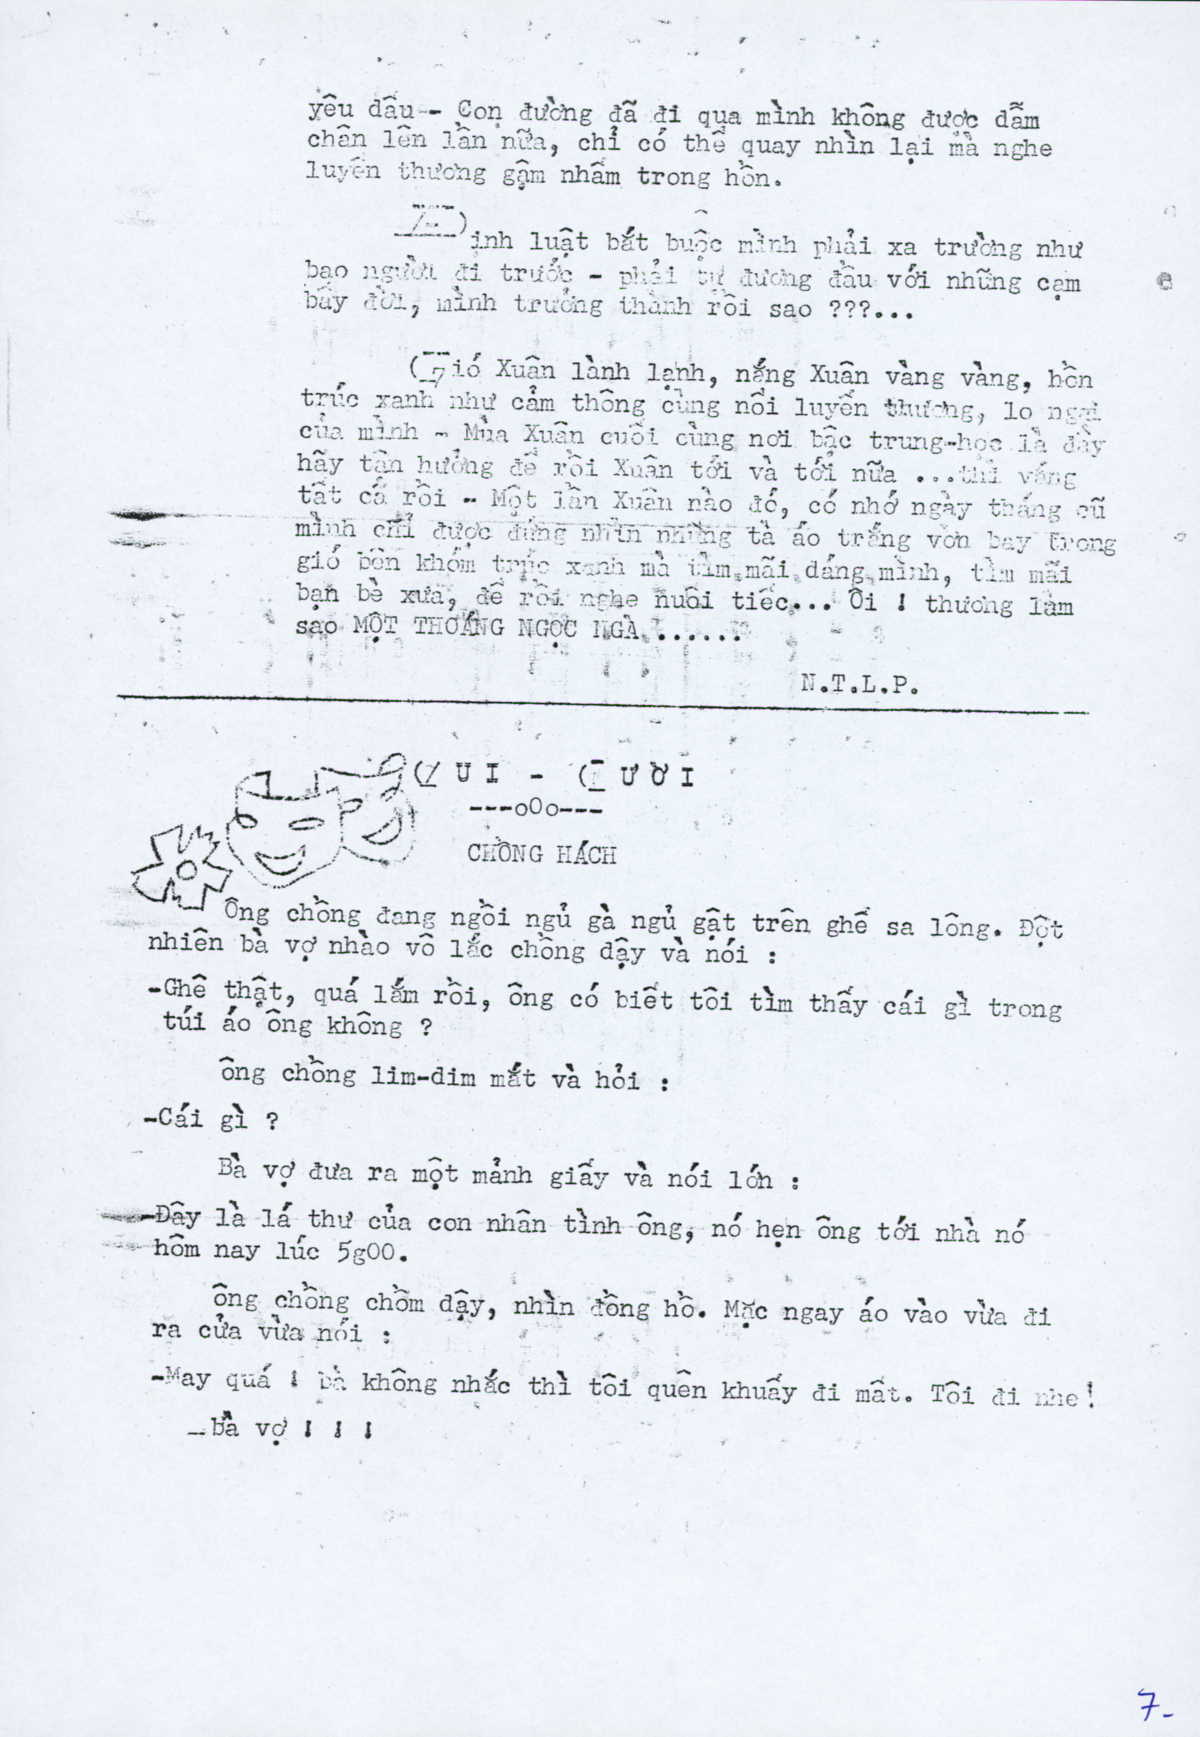 yêu dấu -- Con đường đã đi qua mình không được dẫm
chân lên lần nữa, chỉ có thể quay nhìn lại mà nghe
luyến thương gậm nhấm trong hồn.
Định luật bắt buộc mình phải xa trường như
bao người đi trước - phải tự đương đầu với những cạm
bẫy đời, mình trưởng thành rồi sao ???...
Gió Xuân lành lạnh, nắng Xuân vàng vàng, hồn
trúc xanh như cảm thông cùng nỗi luyến thương, lo ngại
của mình - Mùa Xuân cuối cùng nơi bậc trung-học là đây
hãy tận hưởng để rồi Xuân tới và tới nữa ...thì vắng
tất cả rồi -- Một lần Xuân nào đó, có nhớ ngày tháng cũ
mình chỉ được đứng nhìn những tà áo trắng vờn bay trong
gió bên khóm trúc xanh mà tìm mãi dáng mình, tìm mãi
bạn bè xưa, để rồi nghe nuối tiếc... Ôi ! thương làm
sao MỘT THOÁNG NGỌC NGÀ ......
N.T.L.P.
VUI - CƯỜI
---oOo---
CHỒNG HÁCH
Ông chồng đang ngồi ngủ gà ngủ gật trên ghế sa lông. Đột
nhiên bà vợ nhào vô lắc chồng dậy và nói :
-Ghê thật, quá lắm rồi, ông có biết tôi tìm thấy cái gì trong
túi áo ông không ?
ông chồng lim-dim mắt và hỏi :
-Cái gì ?
Bà vợ đưa ra một mảnh giấy và nói lớn :
-Đây là lá thư của con nhân tình ông, nó hẹn ông tới nhà nó
hôm nay lúc 5g00.
ông chồng chồm dậy, nhìn đồng hồ. Mặc ngay áo vào vừa đi
ra cửa vừa nói :
-May quá ! bà không nhắc thì tôi quên khuấy đi mất. Tôi đi nhe!
-bà vợ ! ! !
7-